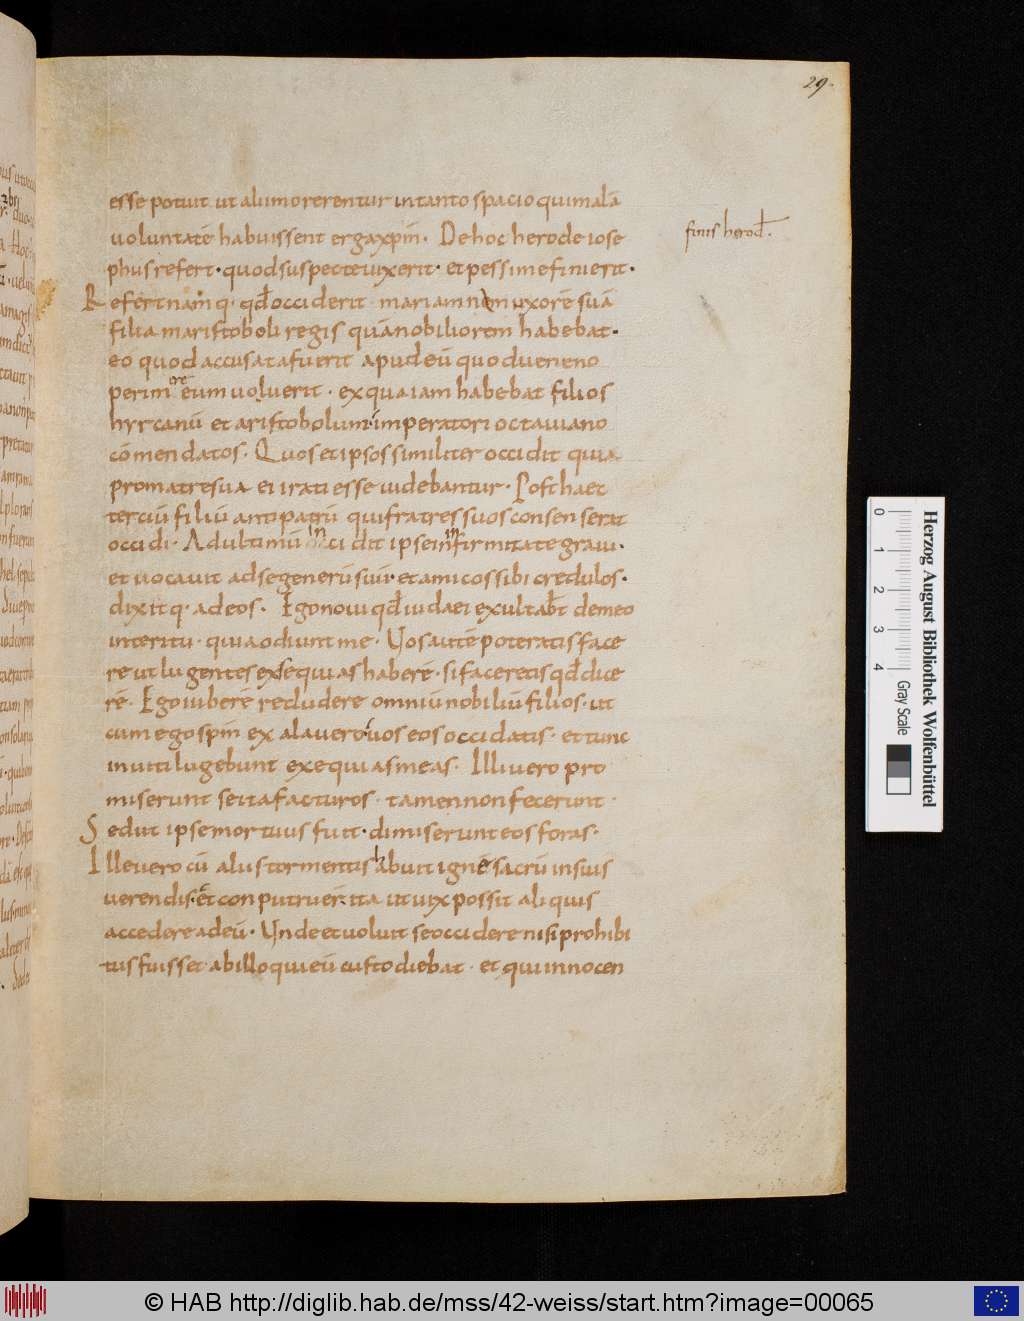 29.
esse potuit ut alii morerentur in tanto spacio qui malā
uoluntatē habuissent erga xp̄m. De hoc herode iose
finis herod̄.
phus refert. quod suspecte uixerit. et pessime finierit.
Refert namq. qd̄ occiderit mariamnem uxorē suā
filia maristoboli regis quā nobiliorem habebat.
eo quod accusata fuerit apud eū quod ueneno
perimere eum uoluerit. ex qua iam habebat filios
hyrcanū et aristobolum. imperatori octauiano
cōmendatos. Quos et ipsos similiter occidit quia
pro matre sua ei irati esse uidebantur. Post haec
terciū filiū antipatrū qui fratres suos consenserat
occidi. Ad ultimū incidit ipse in infirmitate graui.
et uocauit ad se generū suū. et amicos sibi credulos.
dixitq. ad eos. Ego noui qd̄ iudaei exultab̄t de meo
interitu. quia odiunt me. Uos autē poteratis face
re ut lugentes exsequias haberē. si faceretis qd̄ dice
rē. Ego iuberē recludere omniū nobiliū filios. ut
cum ego sp̄m exalauero. uos eos occidatis. et tunc
inuiti lugebunt exequias meas. Illi uero pro
miserunt se ita facturos. tamen non fecerunt.
Sed ut ipse mortuus fuit. dimiserunt eos foras.
Ille uero cū aliis tormentis habuit ignē sacrū in suis
uerendis. et conputruer. ita ut uix possit aliquis
accedere ad eū. Unde et uoluit se occidere nisi prohibi
tus fuisset ab illo qui eū custodiebat. et qui innocen
Herzog August Bibliothek Wolfenbüttel
0 1 2 3 4 Gray Scale
© HAB http://diglib.hab.de/mss/42-weiss/start.htm?image=00065